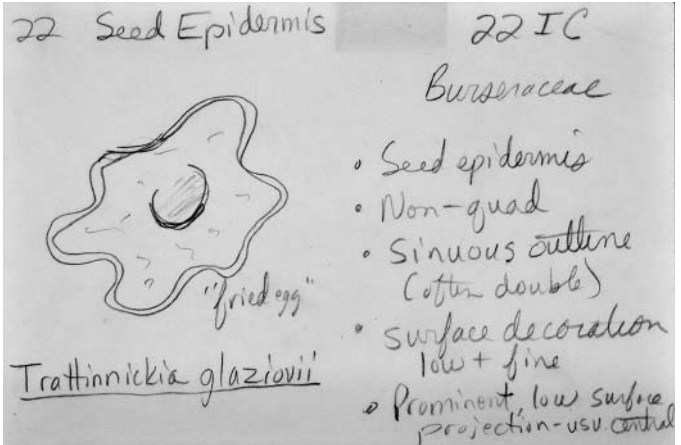 22 Seed Epidermis
"fried egg"
Trattinnickia glaziovii
22 IC
Burseraceae
• Seed epidermis
• Non-quad
• Sinuous outline
(often double)
• surface decoration
low + fine
• Prominent, low surface
projection - usu. central